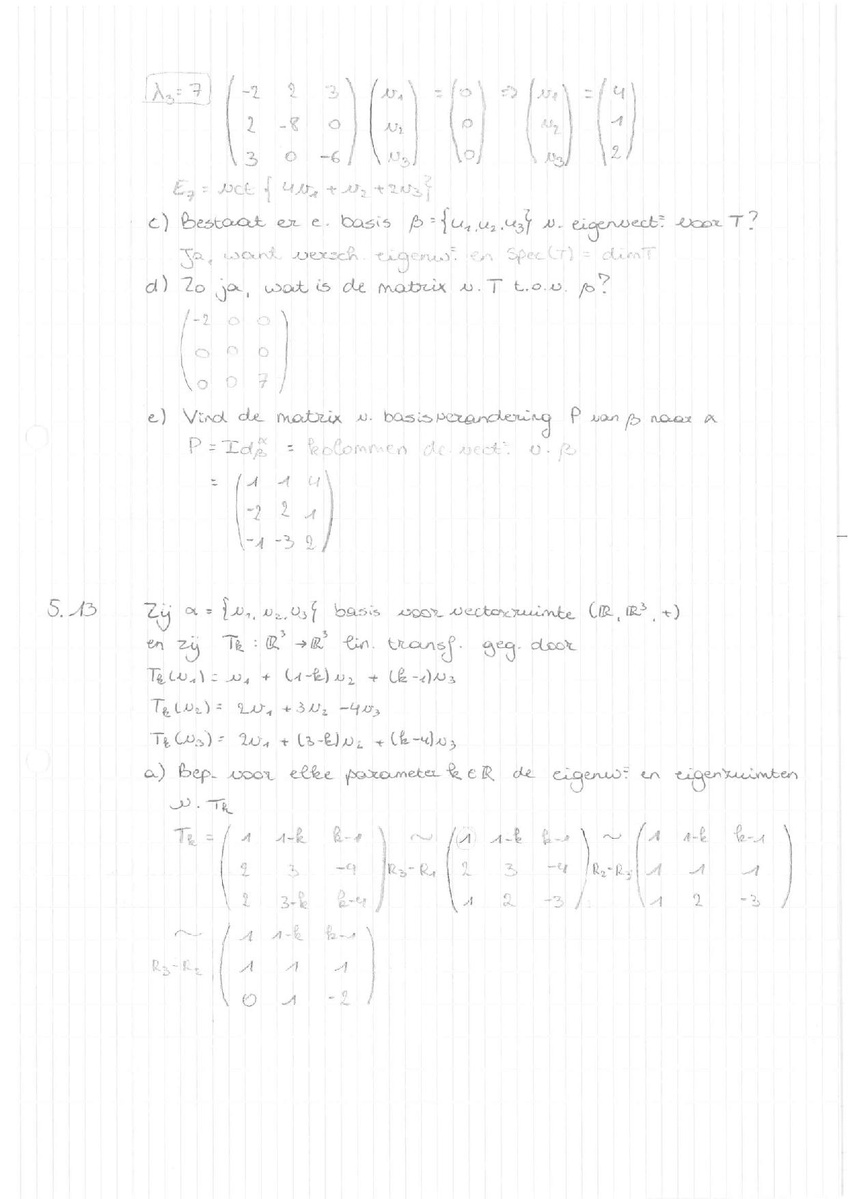 λ₃=7 (-2 2 3; 2 -8 0; 3 0 -6) (v₁; v₂; v₃) = (0; 0; 0) ⇒ (v₁; v₂; v₃) = (4; 1; 2)
E₇ = vct {4v₁ + v₂ + 2v₃}
c) Bestaat er e. basis β = {u₁, u₂, u₃} v. eigenvect⁼ voor T?
Ja, want versch. eigenw⁼ en Spec(T) = dim T
d) Zo ja, wat is de matrix v. T t.o.v. β?
(-2 0 0
0 0 0
0 0 7)
e) Vind de matrix v. basisverandering P van β naar α
P = Id_β^α = kolommen de vect⁼ v. β
= (1 1 4
-2 2 1
-1 -3 2)
5.13 Zij α = {v₁, v₂, v₃} basis voor vectorruimte (ℝ, ℝ³, +)
en zij Tk : ℝ³ → ℝ³ lin. transf. geg. door
Tk(v₁) = v₁ + (1-k)v₂ + (k-1)v₃
Tk(v₂) = 2v₁ + 3v₂ -4v₃
Tk(v₃) = 2v₁ + (3-k)v₂ + (k-4)v₃
a) Bep. voor elke parameter k ∈ ℝ de eigenw⁼ en eigenruimten
v. Tk
Tk = (1 1-k k-1; 2 3 -4; 2 3-k k-4) ~ R₃-R₁ (1 1-k k-1; 2 3 -4; 1 2 -3) ~ R₂-R₃ (1 1-k k-1; 1 1 1; 1 2 -3)
~ R₃-R₂ (1 1-k k-1; 1 1 1; 0 1 -2)